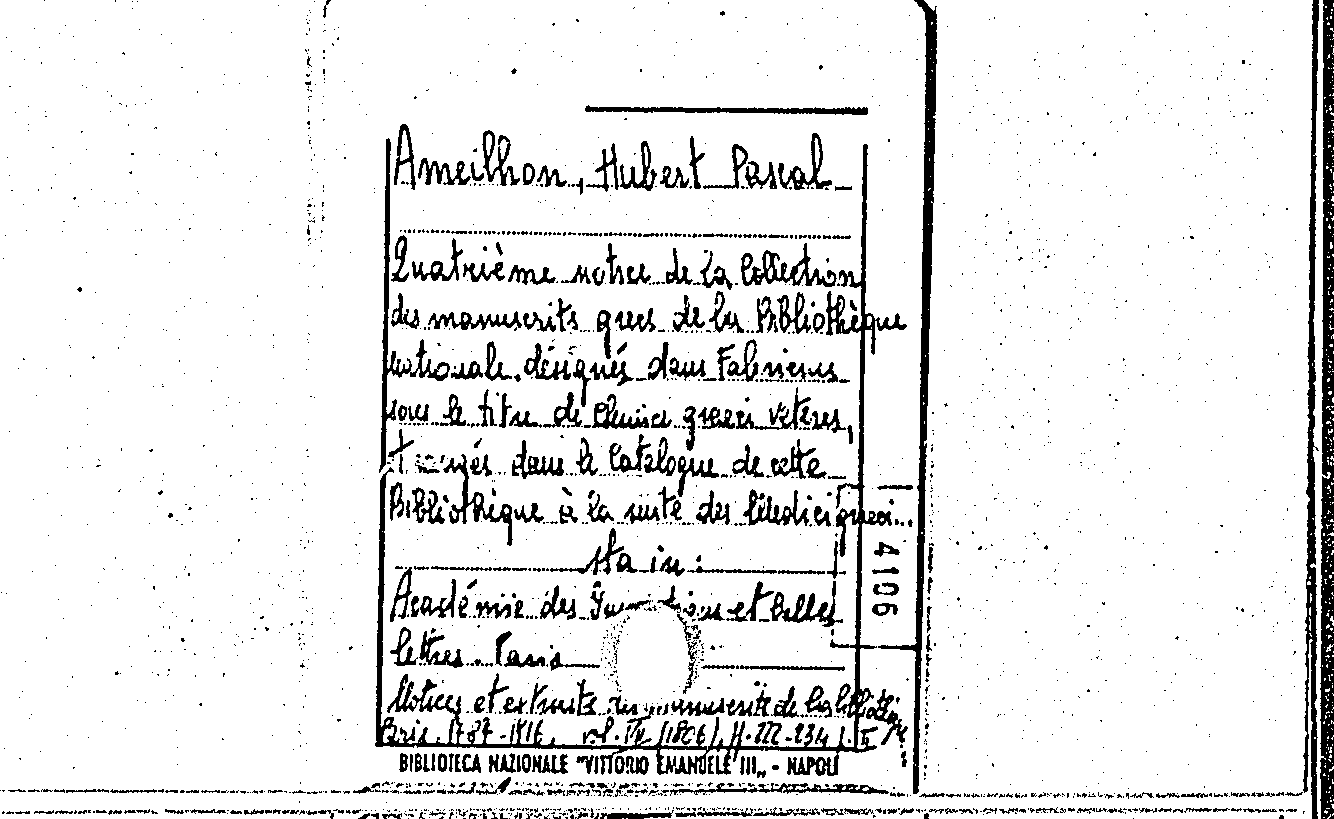 Ameilhon, Hubert Pascal
Quatrième notice de la Collection
des manuscrits grecs de la Bibliothèque
nationale, désignés dans Fabricius
sous le titre de Chimici graeci veteres,
et rangés dans le Catalogue de cette
Bibliothèque à la suite des Medici graeci...
sta in:
Académie des Inscriptions et belles
lettres. Paris
Notices et extraits des manuscrits de la biblioth
Paris. 1787-1816. vol. (1806), pp. 222-234
4106
BIBLIOTECA NAZIONALE "VITTORIO EMANUELE III„ - NAPOLI